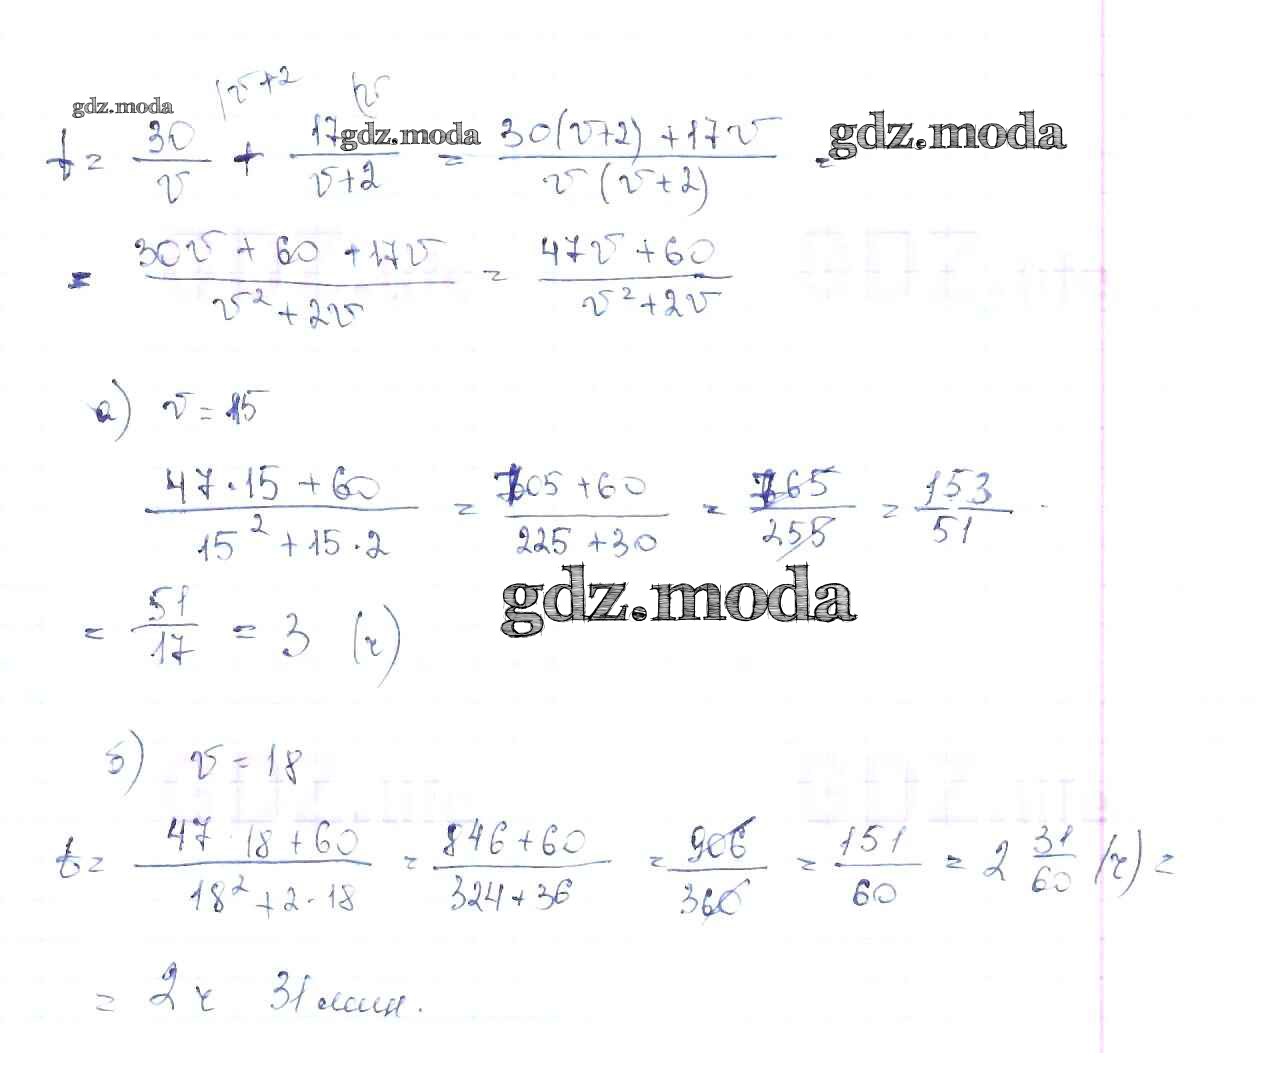 gdz.moda
t = 30/v |v+2 + 17/(v+2) |v = (30(v+2)+17v)/(v(v+2)) =
gdz.moda gdz.moda
= (30v+60+17v)/(v²+2v) = (47v+60)/(v²+2v)
а) v = 15
(47·15+60)/(15²+15·2) = (705+60)/(225+30) = 765/255 = 153/51
= 51/17 = 3 (ч)
gdz.moda
б) v = 18
t = (47·18+60)/(18²+2·18) = (846+60)/(324+36) = 906/360 = 151/60 = 2 31/60 (ч) =
= 2 ч 31 мин.